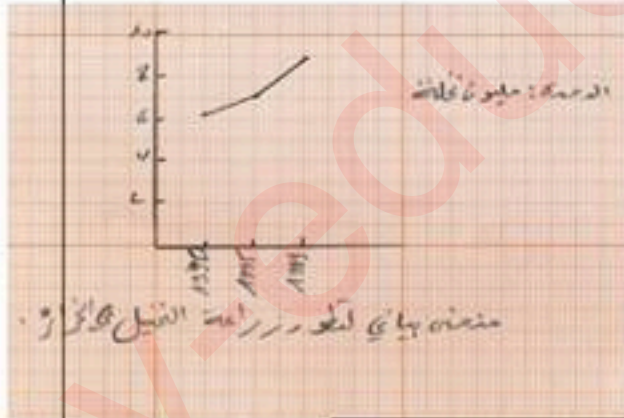 10
8
6
4
2
الوحدة: مليون نخلة
1995
1999
منحنى بياني لتطور زراعة النخيل في الجزائر.
y-edu